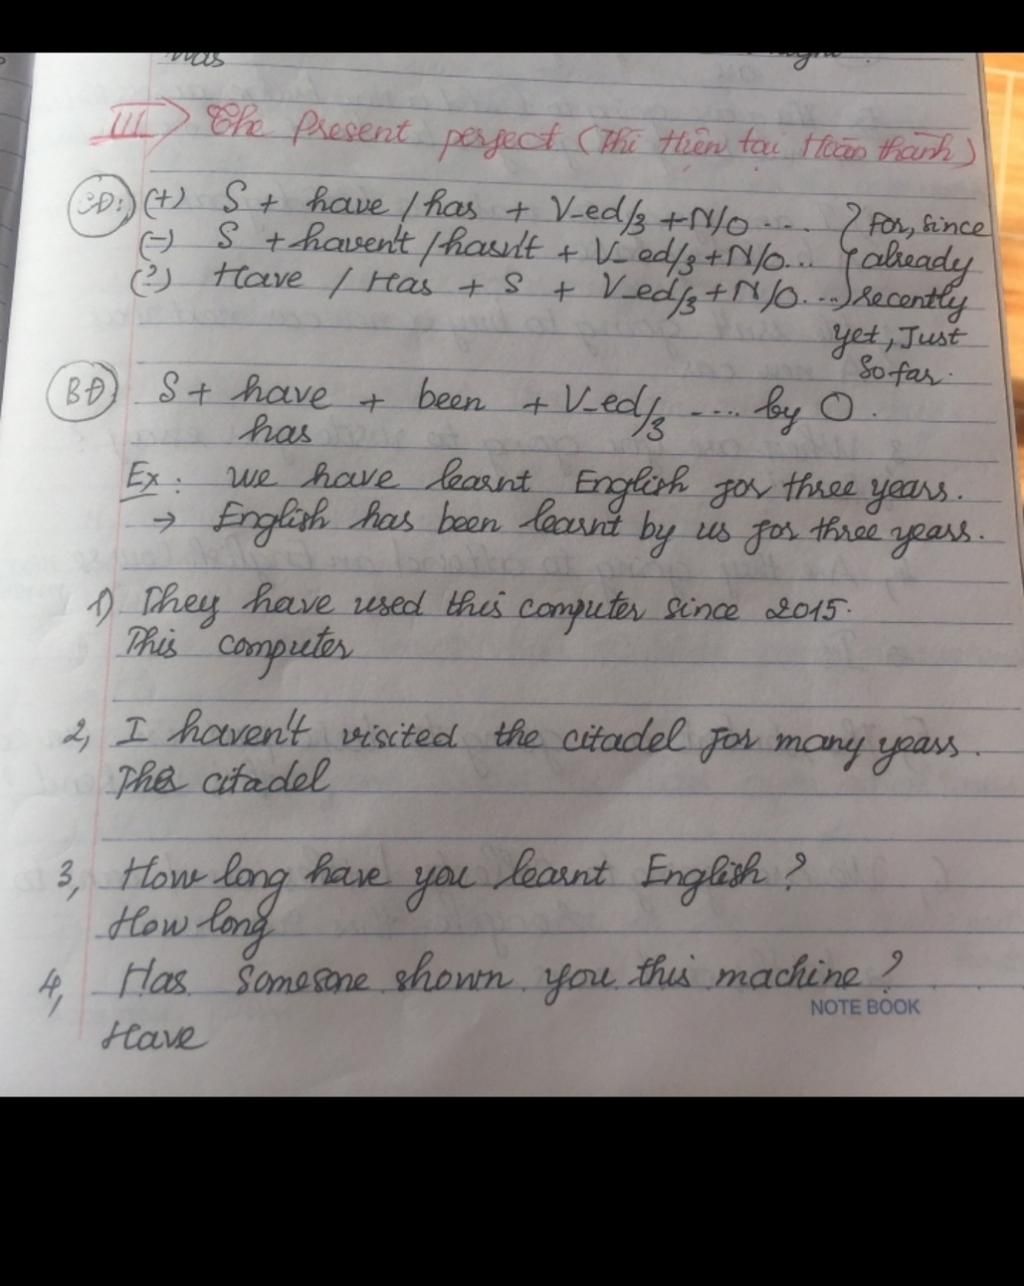 was
III) The Present perfect (Thì Hiện tại Hoàn thành)
CĐ: (+) S + have / has + V-ed/3 + N/O .... For, since
(-) S + haven't / hasn't + V-ed/3 + N/O... already
(?) Have / Has + S + V-ed/3 + N/O.... recently
yet, Just
So far.
BĐ S + have + been + V-ed/3 .... by O.
has
Ex: we have learnt English for three years.
→ English has been learnt by us for three years.
1) They have used this computer since 2015.
This computer
2, I haven't visited the citadel for many years.
The citadel
3, How long have you learnt English?
How long
4, Has Somesone shown you this machine?
NOTE BOOK
Have